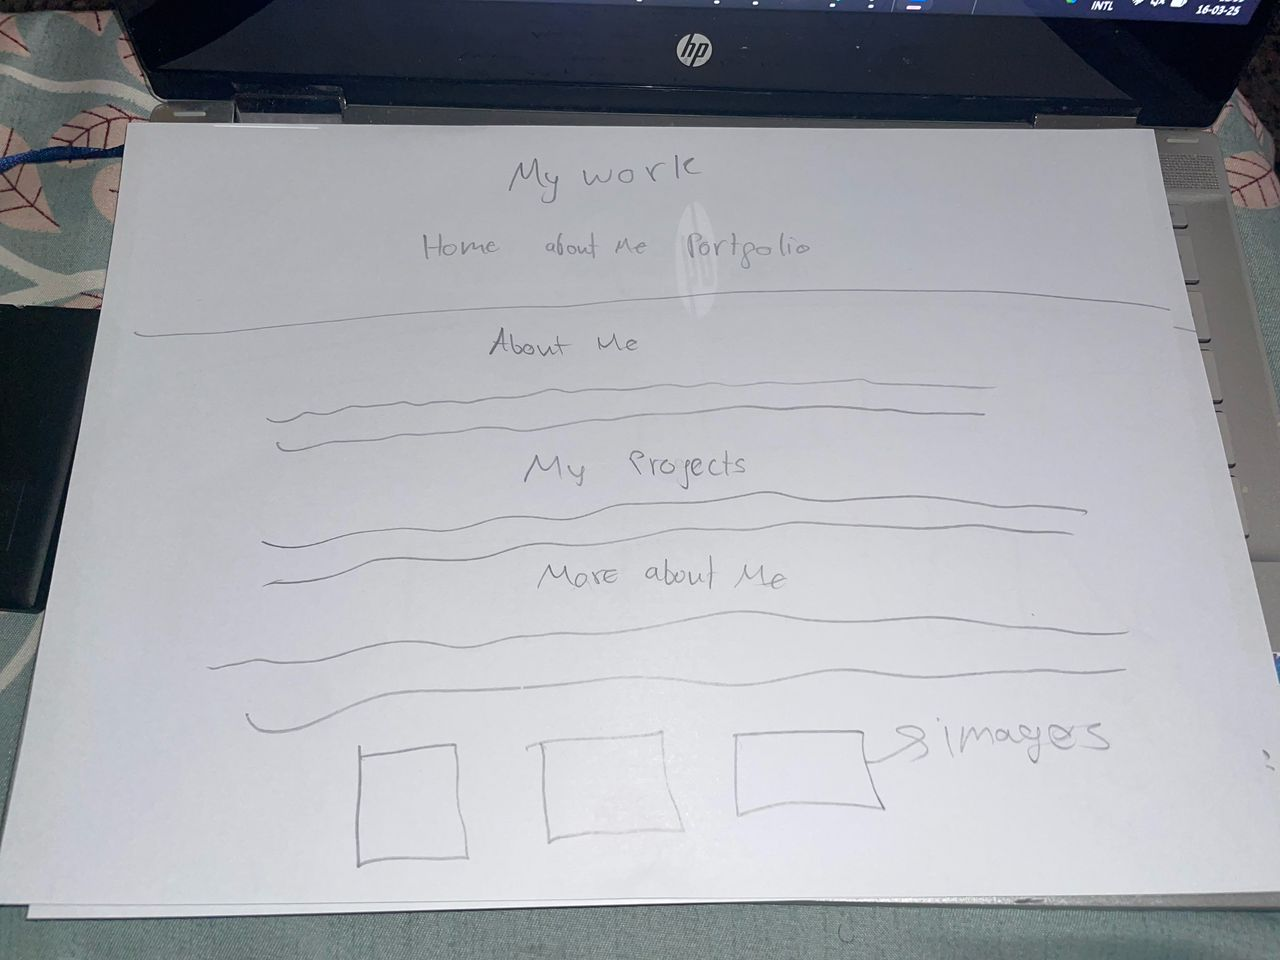 INTL
16-03-25
hp
My work
Home about Me Portfolio
About Me
My Projects
More about Me
images